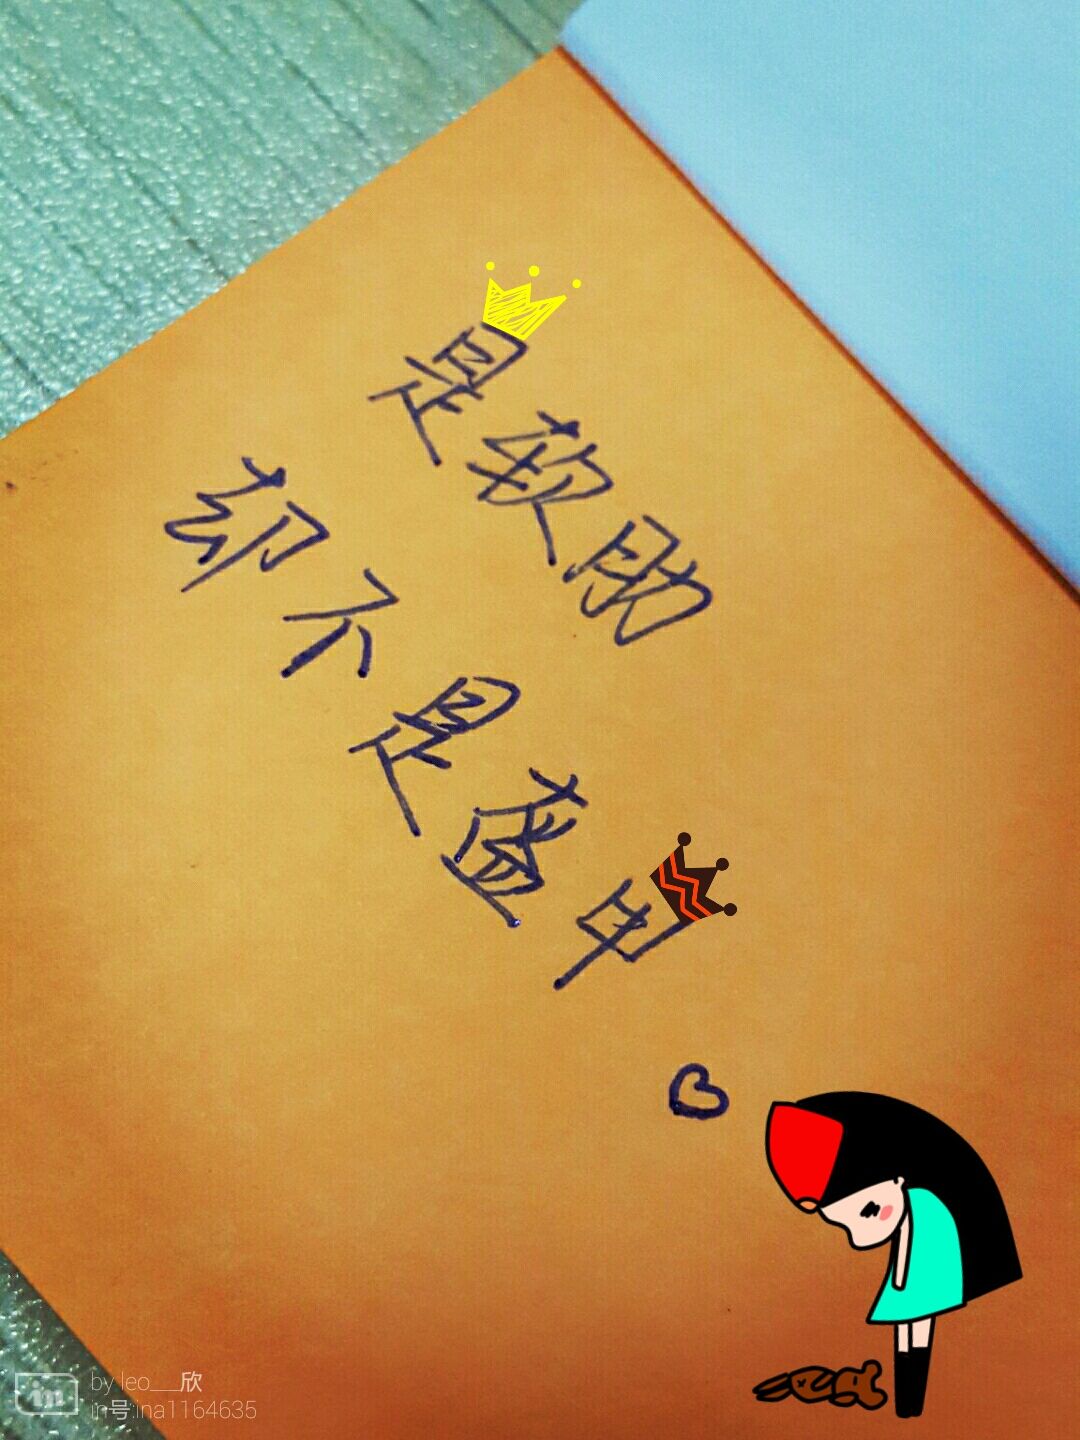 是软肋
却不是盔甲
in
by leo___欣
in号:ina1164635